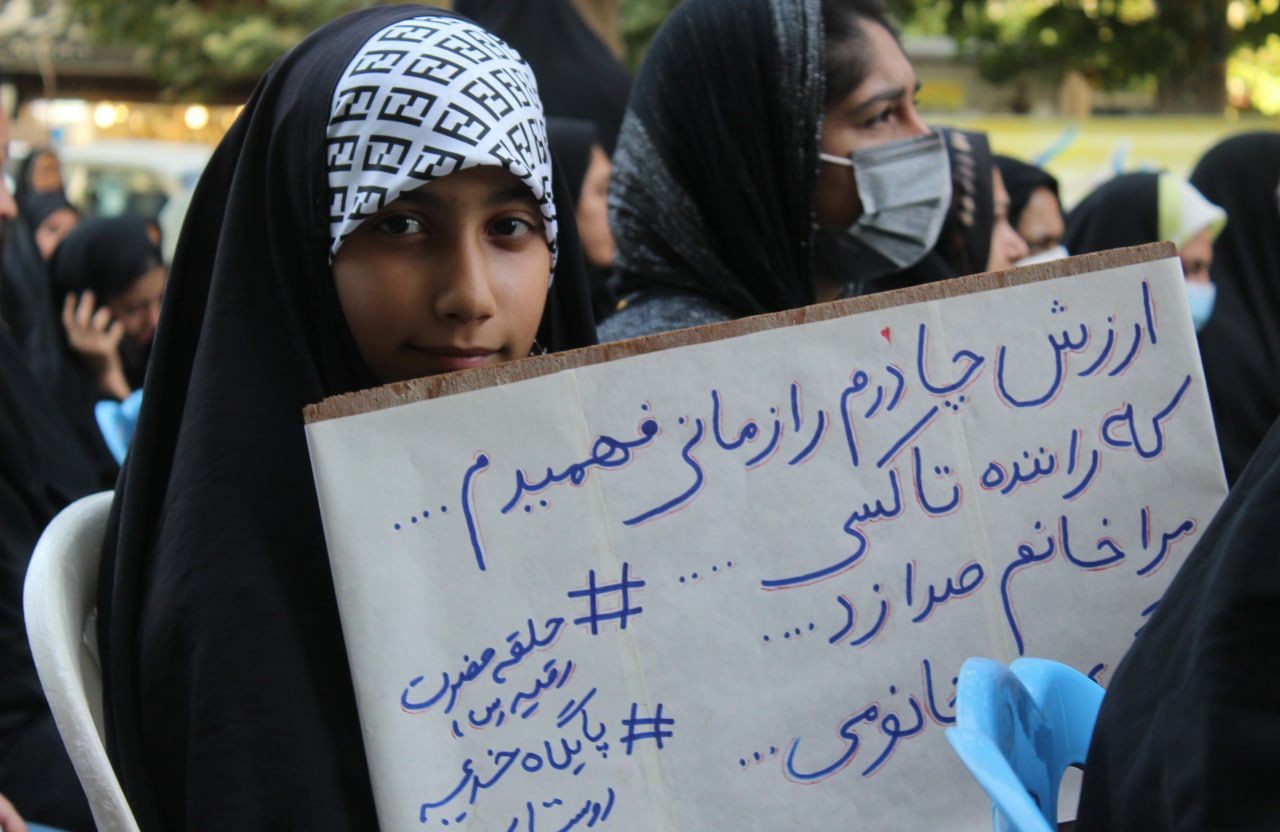 ارزش چادرم را زمانی فهمیدم ....
که راننده تاکسی ....
مرا خانم صدا زد ....
خانومی ...
# حلقه حضرت
رقیه (س)
# پایگاه خدیجه